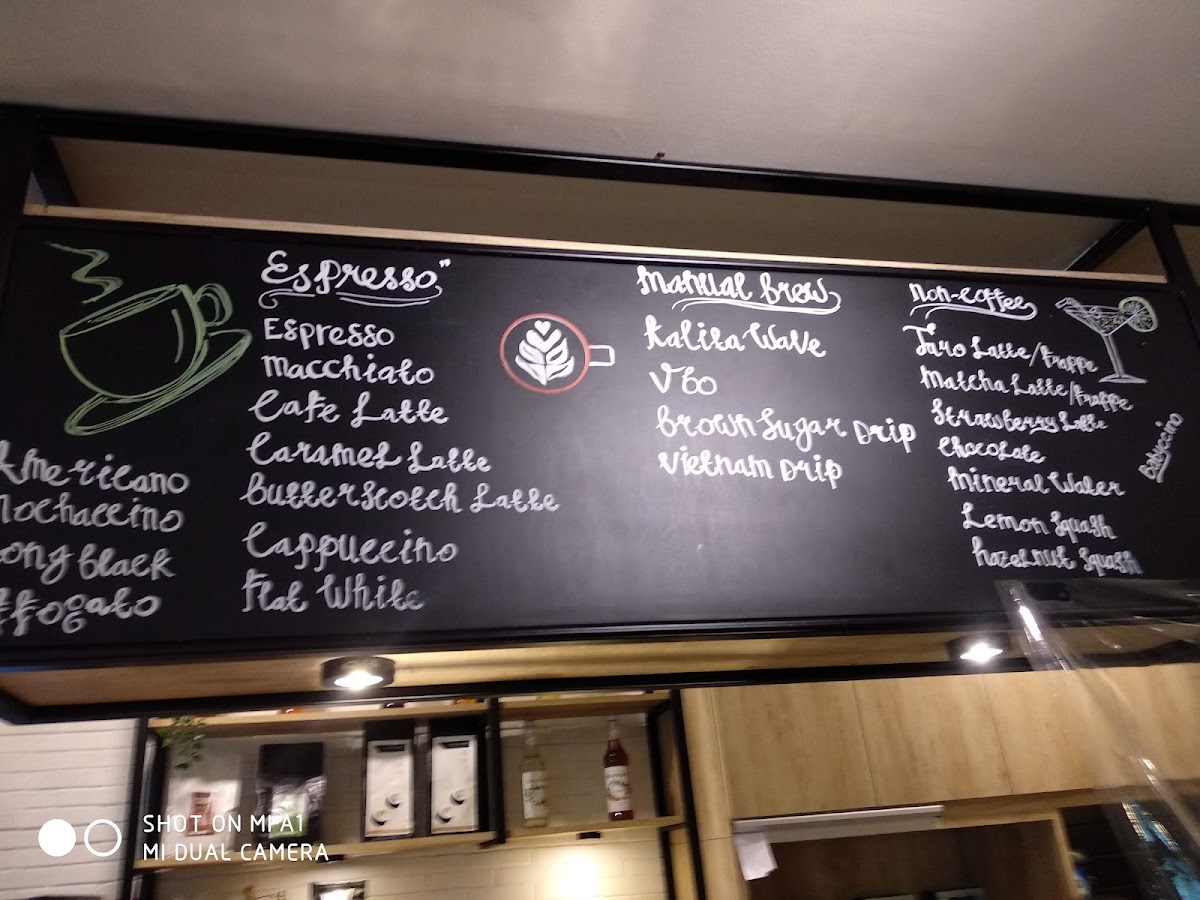 Espresso"
Espresso
Macchiato
Cafe Latte
Caramel Latte
Butterscotch Latte
Cappuccino
Flat White
Americano
Mochaccino
ong black
ffogato
Manual brew
Kalita Wave
V60
Brown Sugar Drip
Vietnam Drip
Non-coffee
Taro Latte/Frappe
Matcha Latte/Frappe
Strawberry Latte
Chocolate
Mineral Water
Lemon Squash
hazelnut Squash
Babyccino
SHOT ON MFA1
MI DUAL CAMERA